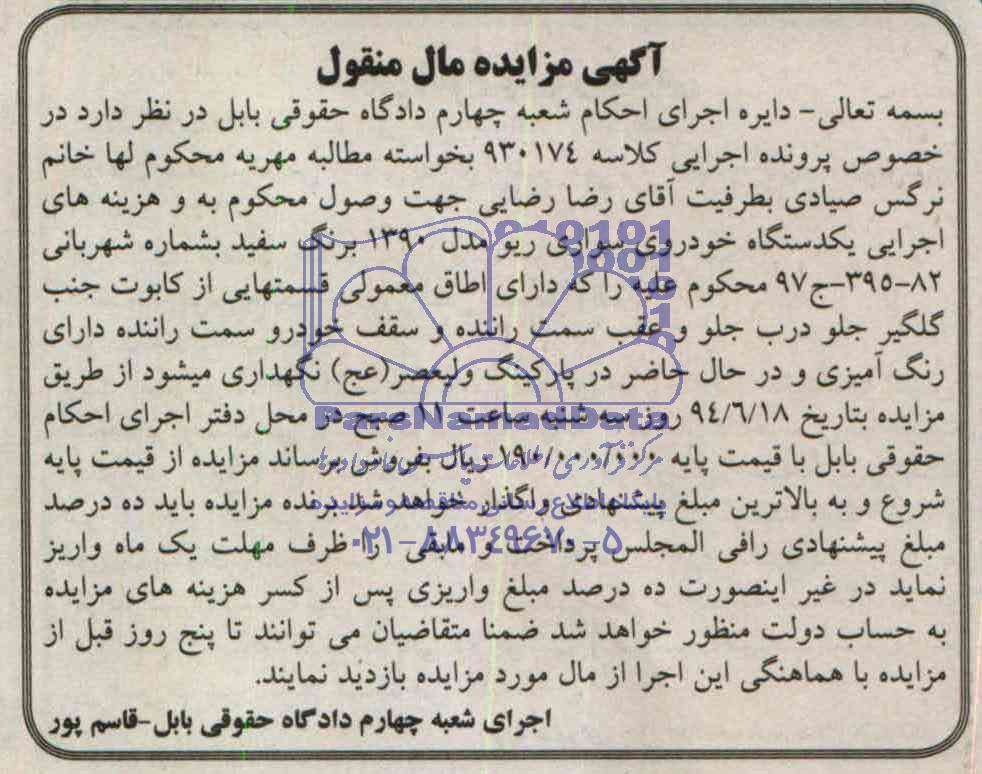 آگهی مزایده مال منقول
بسمه تعالی- دایره اجرای احکام شعبه چهارم دادگاه حقوقی بابل در نظر دارد در
خصوص پرونده اجرایی کلاسه ۹۳۰۱۷٤ بخواسته مطالبه مهریه محکوم لها خانم
نرگس صیادی بطرفیت آقای رضا رضایی جهت وصول محکوم به و هزینه های
اجرایی یکدستگاه خودروی سواری ریو مدل ۱۳۹۰ برنگ سفید بشماره شهربانی
۸۲-۳۹۵-ج۹۷ محکوم علیه را که دارای اطاق معمولی قسمتهایی از کابوت جنب
گلگیر جلو درب جلو و عقب سمت راننده و سقف خودرو سمت راننده دارای
رنگ آمیزی و در حال حاضر در پارکینگ ولیعصر(عج) نگهداری میشود از طریق
مزایده بتاریخ ۹٤/٦/۱۸ روز سه شنبه ساعت ۱۱ صبح در محل دفتر اجرای احکام
حقوقی بابل با قیمت پایه ۱۹۰/۰۰۰/۰۰۰ ریال بفروش برساند مزایده از قیمت پایه
شروع و به بالاترین مبلغ پیشنهادی واگذار خواهد شد برنده مزایده باید ده درصد
مبلغ پیشنهادی رافی المجلس پرداخت و مابقی را ظرف مهلت یک ماه واریز
نماید در غیر اینصورت ده درصد مبلغ واریزی پس از کسر هزینه های مزایده
به حساب دولت منظور خواهد شد ضمنا متقاضیان می توانند تا پنج روز قبل از
مزایده با هماهنگی این اجرا از مال مورد مزایده بازدید نمایند.
اجرای شعبه چهارم دادگاه حقوقی بابل-قاسم پور
ParsNamadData
۰۲۱-۸۸۳۴۹۶۷۰-۵